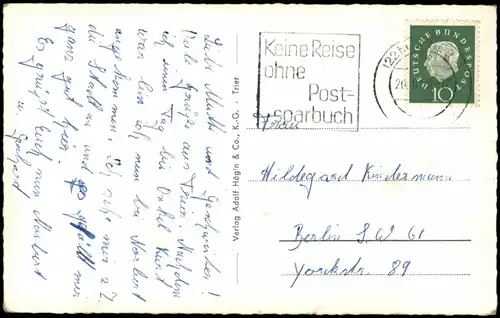 Liebe Mutti und Geschwister!
Viele Grüße aus Trier. Nachdem
ich einen Tag bei Onkel Kurt
war bin ich nun bei Norbert
angekommen. Ich seh mir z.Z.
die Stadt an und es gefällt mir
ganz gut hier.
Es grüßt Euch nun Norbert
u. Gerhard
Verlag Adolf Hägin & Co., K.-G. · Trier
Keine Reise
ohne
Post-
sparbuch
DEUTSCHE BUNDESPOST
10
Frau
Hildegard Kindermann
Berlin S.W. 61
Yorckstr. 89